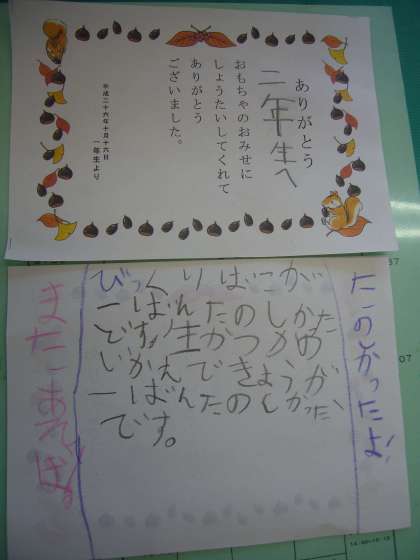 ありがとう
二年生へ
おもちゃのおみせに
しょうたいしてくれて
ありがとう
ございました。
平成二十六年十月十六日
一年生より
たのしかったよ!
びっくりばこが
一ばんたのしかた
です。生かつかの
かえできょうが
一ばんたのしかった
です。
07